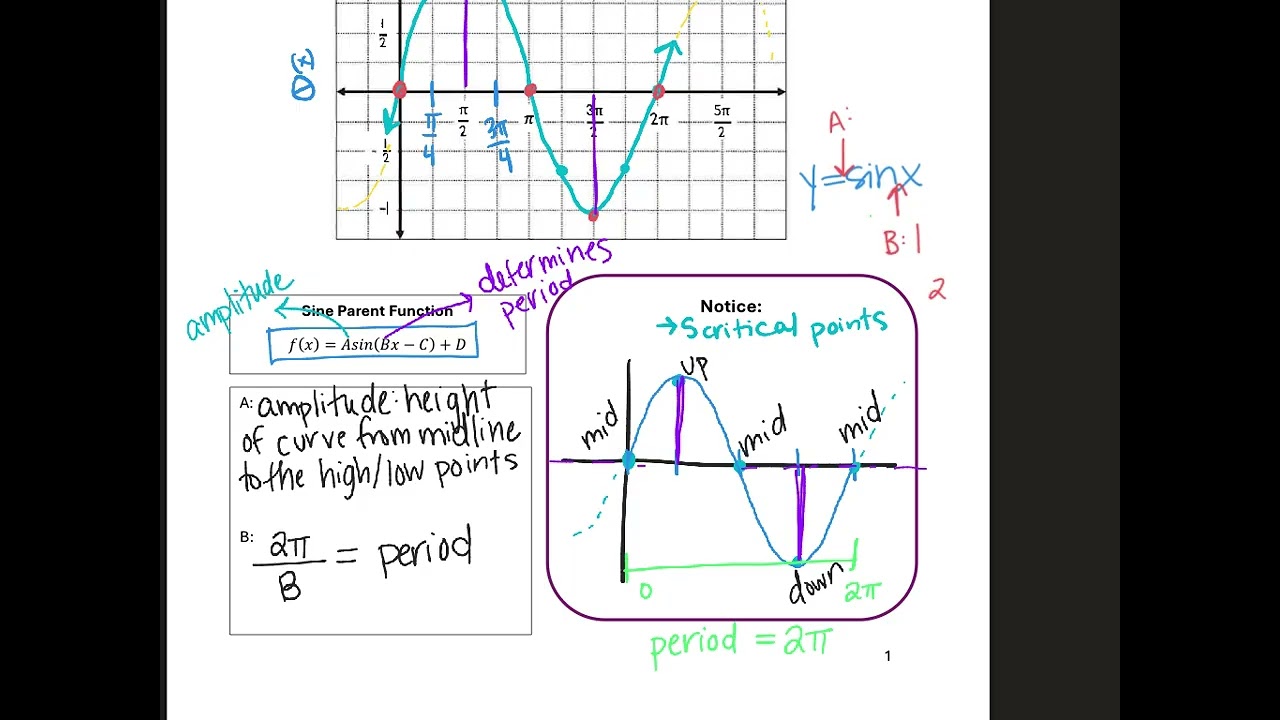 1/2
(x)
π/4
π/2
3π/4
π
3π/2
2π
5π/2
-1/2
-1
A:
y=sinx
B:1
2
amplitude
determines
period
Sine Parent Function
f(x) = Asin(Bx − C) + D
A: amplitude: height
of curve from midline
to the high/low points
B: 2π/B = period
Notice:
→5 critical points
up
mid
mid
mid
down
0
2π
period = 2π
1